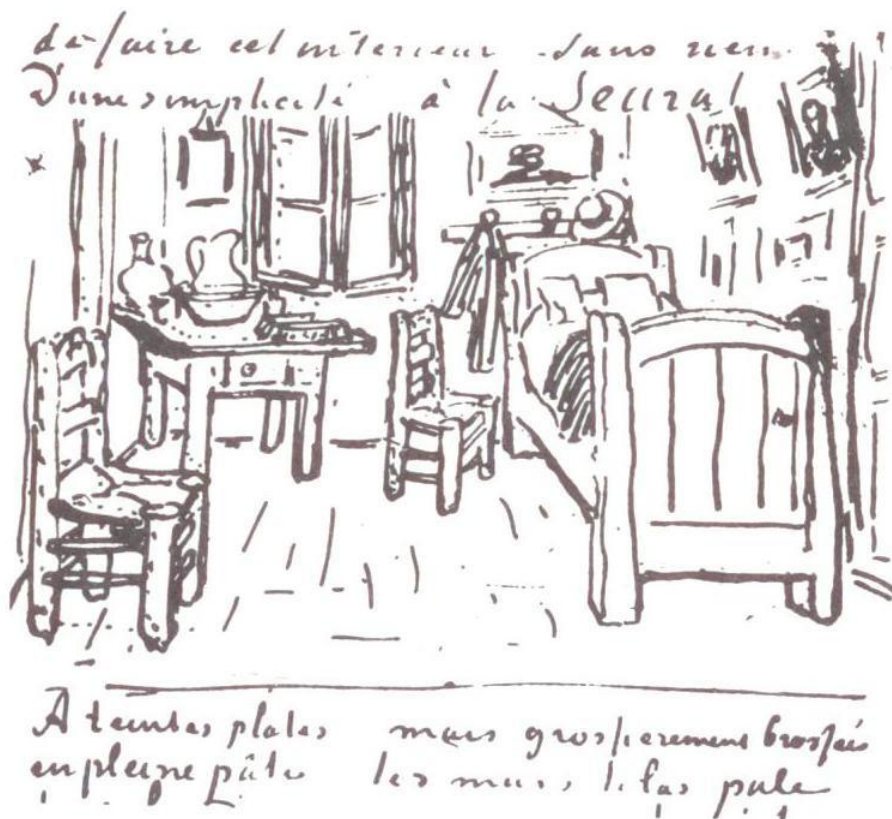 de faire cet interieur sans rien
D'une simplicité à la Seurat
A teintes plates mais grossierement brossées
en pleine pâte les murs lilas pale